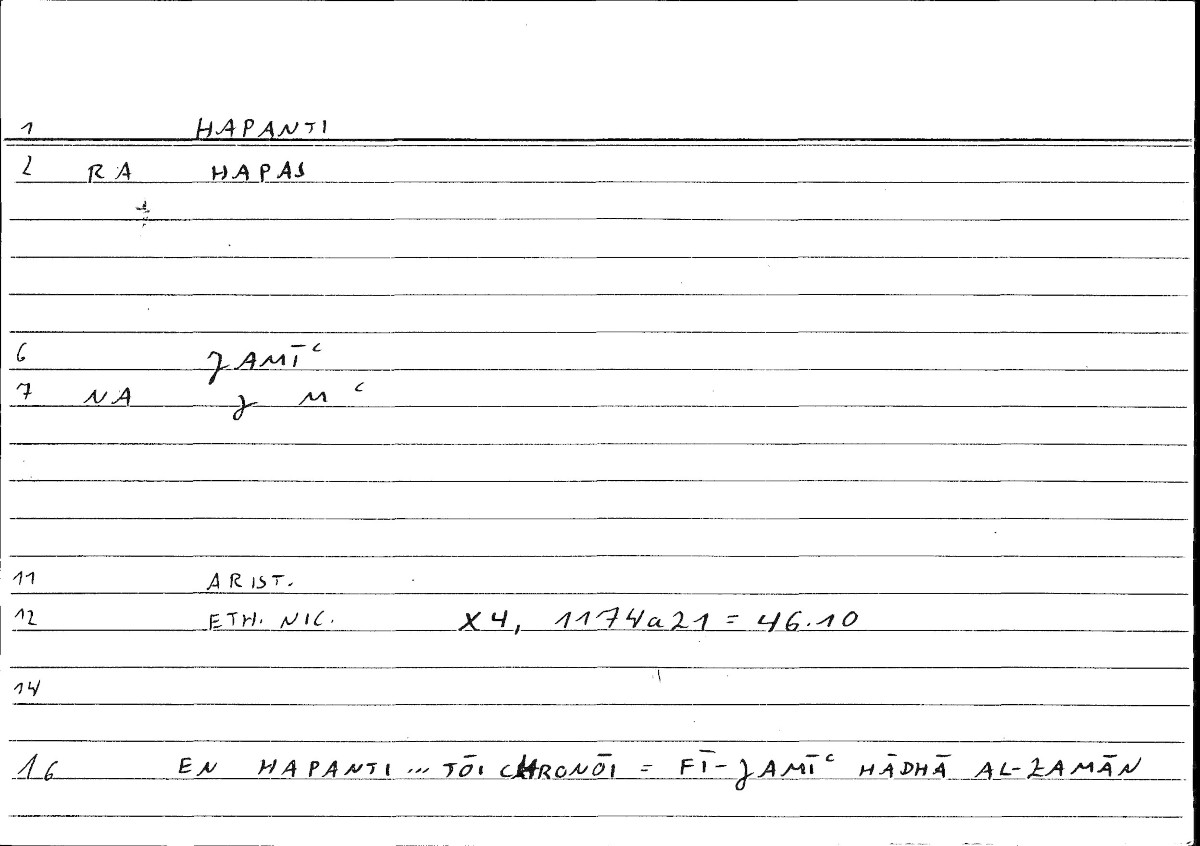 1 HAPANTI
2 RA HAPAS
6 JAMĪʿ
7 NA J M ʿ
11 ARIST.
12 ETH. NIC. X4, 1174a21 = 46.10
14
16 EN HAPANTI ... TŌI CHRONŌI = FĪ-JAMĪʿ HĀDHĀ AL-ZAMĀN